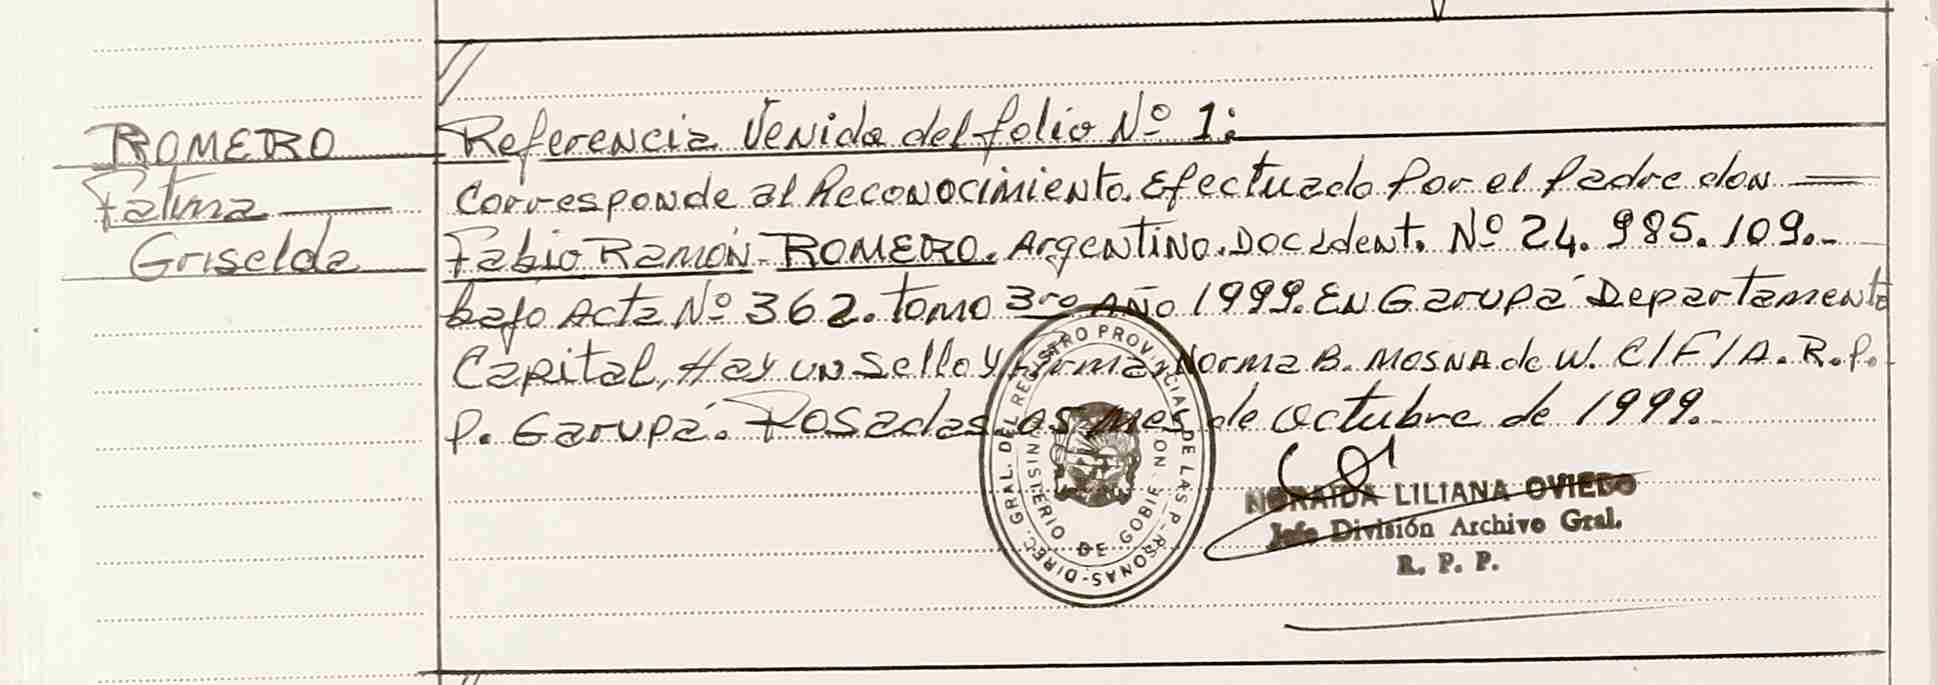 ROMERO
Fatima
Griselda
Referencia Venida del folio Nº 1:
Corresponde al Reconocimiento. Efectuado Por el Padre don
Fabio Ramón ROMERO. Argentino. Doc Ident. Nº 24.985.109.-
bajo Acta Nº 362. tomo 3ro Año 1999. EN Garupá Departamento
Capital, Hay un Sello y firma, Norma B. MOSNA de W. C/F/A. R.P.
P. Garupá. Posadas 05 mes de Octubre de 1999.
DIREC. GRAL. DEL REGISTRO PROVINCIAL DE LAS PERSONAS-
MINISTERIO DE GOBIE
NORAIDA LILIANA OVIEDO
Jefe División Archivo Gral.
R. P. P.